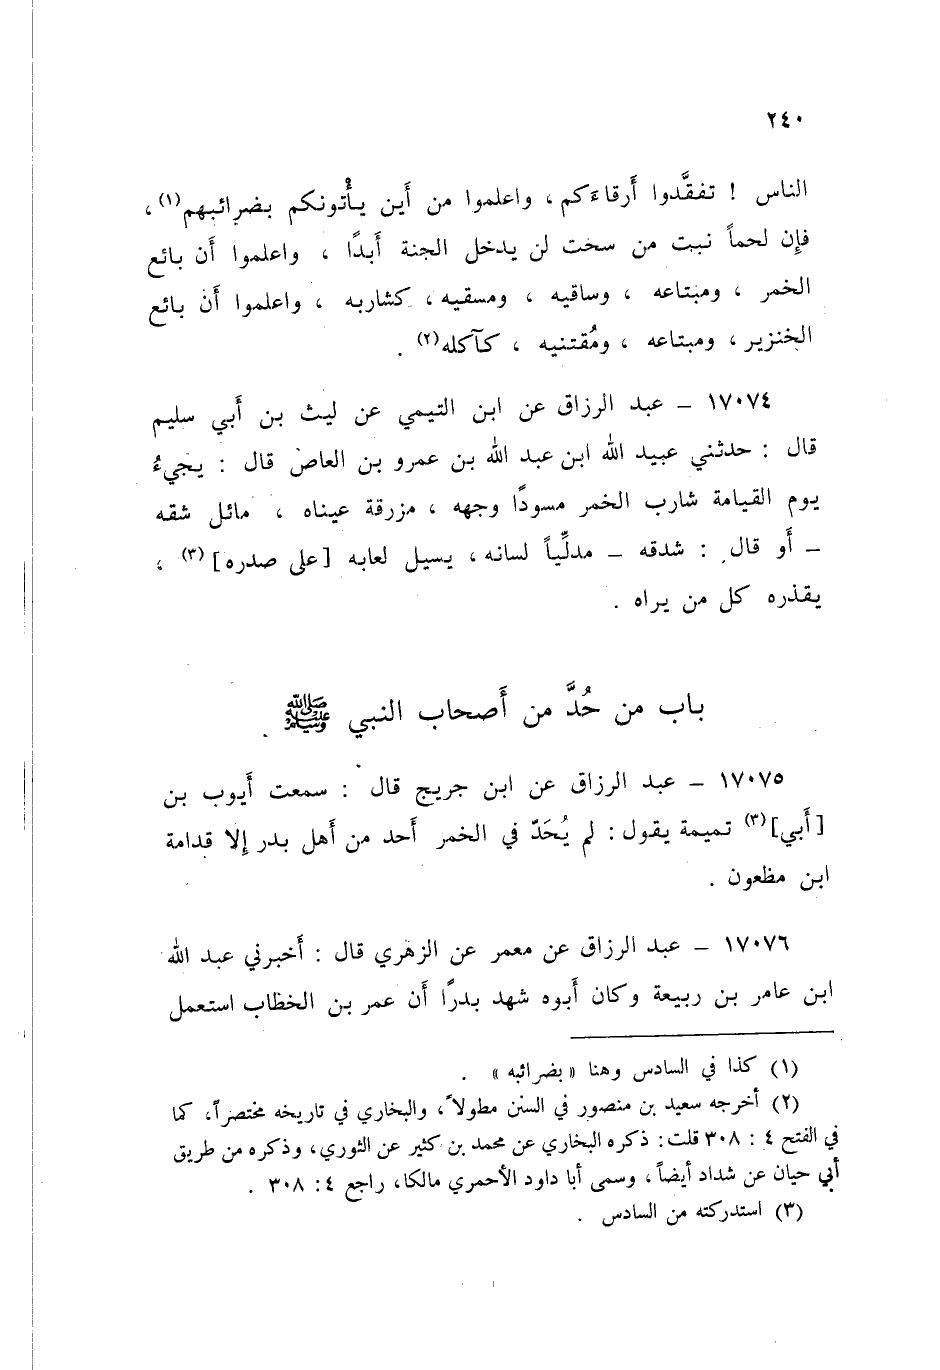 ٢٤٠
الناس ! تفقَّدوا أَرقاءَكم ، واعلموا من أَين يأْتونكم بضرائبهم(١) ،
فإِن لحماً نبت من سحت لن يدخل الجنة أَبدًا ، واعلموا أَن بائع
الخمر ، ومبتاعه ، وساقيه ، ومسقيه ، كشاربه ، واعلموا أَن بائع
الخنزير ، ومبتاعه ، ومُقتنيه ، كآكله(٢) .
١٧٠٧٤ – عبد الرزاق عن ابن التيمي عن ليث بن أَبي سليم
قال : حدثني عبيد الله ابن عبد الله بن عمرو بن العاص قال : يجيءُ
يوم القيامة شارب الخمر مسودًا وجهه ، مزرقة عيناه ، مائل شقه
– أَو قال : شدقه – مدلِّياً لسانه ، يسيل لعابه [على صدره](٣) ،
يقذره كل من يراه .
باب من حُدَّ من أَصحاب النبي ﷺ .
١٧٠٧٥ – عبد الرزاق عن ابن جريج قال : سمعت أَيوب بن
[أَبي](٣) تميمة يقول : لم يُحَدّ في الخمر أَحد من أَهل بدر إِلا قدامة
ابن مظعون .
١٧٠٧٦ – عبد الرزاق عن معمر عن الزهري قال : أَخبرني عبد الله
ابن عامر بن ربيعة وكان أَبوه شهد بدرًا أَن عمر بن الخطاب استعمل
(١) كذا في السادس وهنا «بضرائبه» .
(٢) أخرجه سعيد بن منصور في السنن مطولاً ، والبخاري في تاريخه مختصراً ، كما
في الفتح ٤ : ٣٠٨ قلت : ذكره البخاري عن محمد بن كثير عن الثوري ، وذكره من طريق
أبي حيان عن شداد أيضاً ، وسمى أبا داود الأحمري مالكا ، راجع ٤ : ٣٠٨ .
(٣) استدركته من السادس .